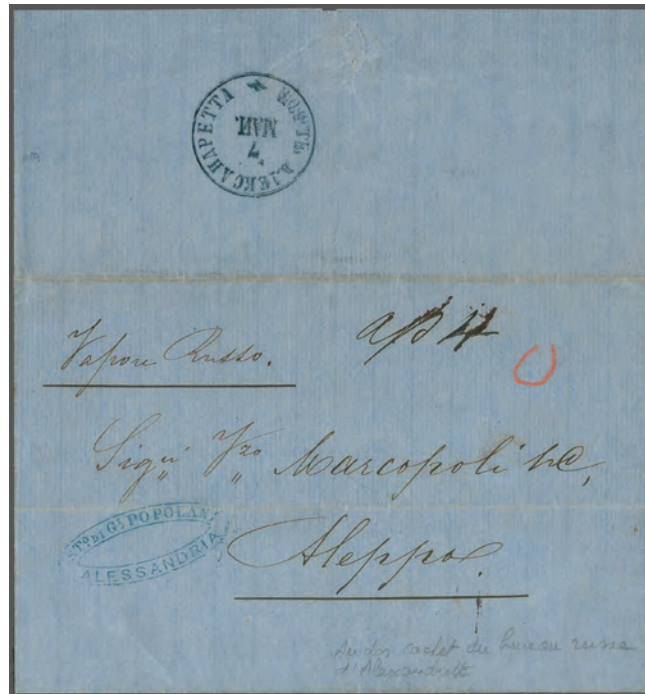 АЛЕКСАНДРЕТТА
7
МАЙ.
Vapore Russo.
Sigri Vzo Marcopoli & C,
Aleppo.
ALESSANDRIA
Au dos cachet du bureau russe
d'Alexandrette